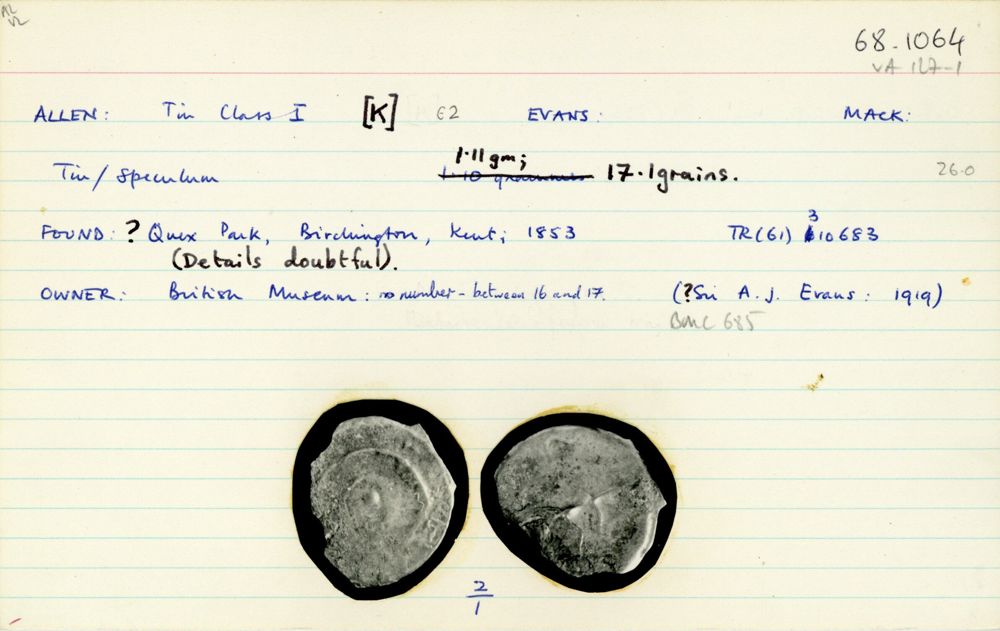 A2
V2
68.1064
VA 127-1
ALLEN: Tin Class I [K] E2 EVANS: MACK:
1.11 gm;
Tin/Speculum 1.10 grammes 17.1 grains. 26.0
FOUND: ? Quex Park, Birchington, Kent; 1853 TR(61) 310683
(Details doubtful).
OWNER: British Museum: no number - between 16 and 17. (? Sir A. J. Evans: 1919)
BMC 685
2
1